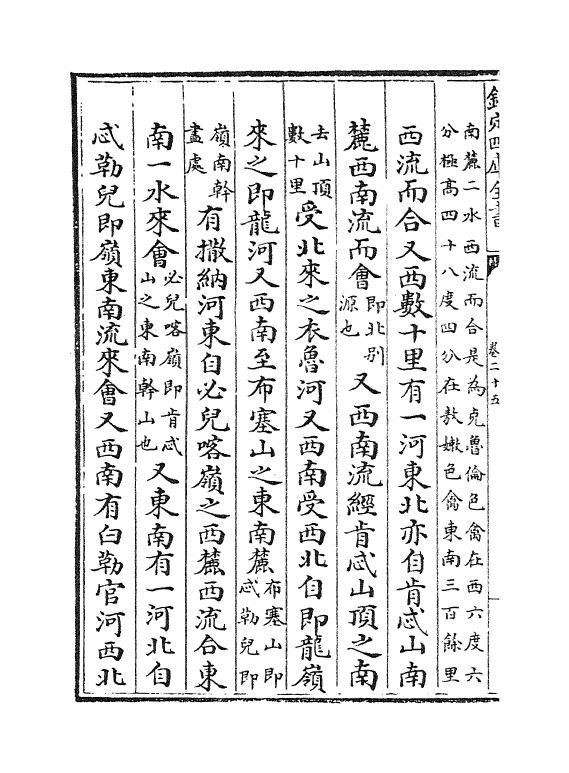 欽定四庫全書
卷二十五
南麓二水西流而合是為克魯倫色禽在西六度六
分極高四十八度四分在敖嫩色禽東南三百餘里
西流而合又西數十里有一河東北亦自肯忒山南
麓西南流而會即北别源也又西南流經肯忒山頂之南
去山頂數十里受北來之衣魯河又西南受西北自即龍嶺
來之即龍河又西南至布塞山之東南麓布塞山即忒勒兒即
嶺南幹盡處有撒納河東自必兒喀嶺之西麓西流合東
南一水來會必兒喀嶺即肯忒山之東南幹山也又東南有一河北自
忒勒兒即嶺東南流來會又西南有臼勒官河西北